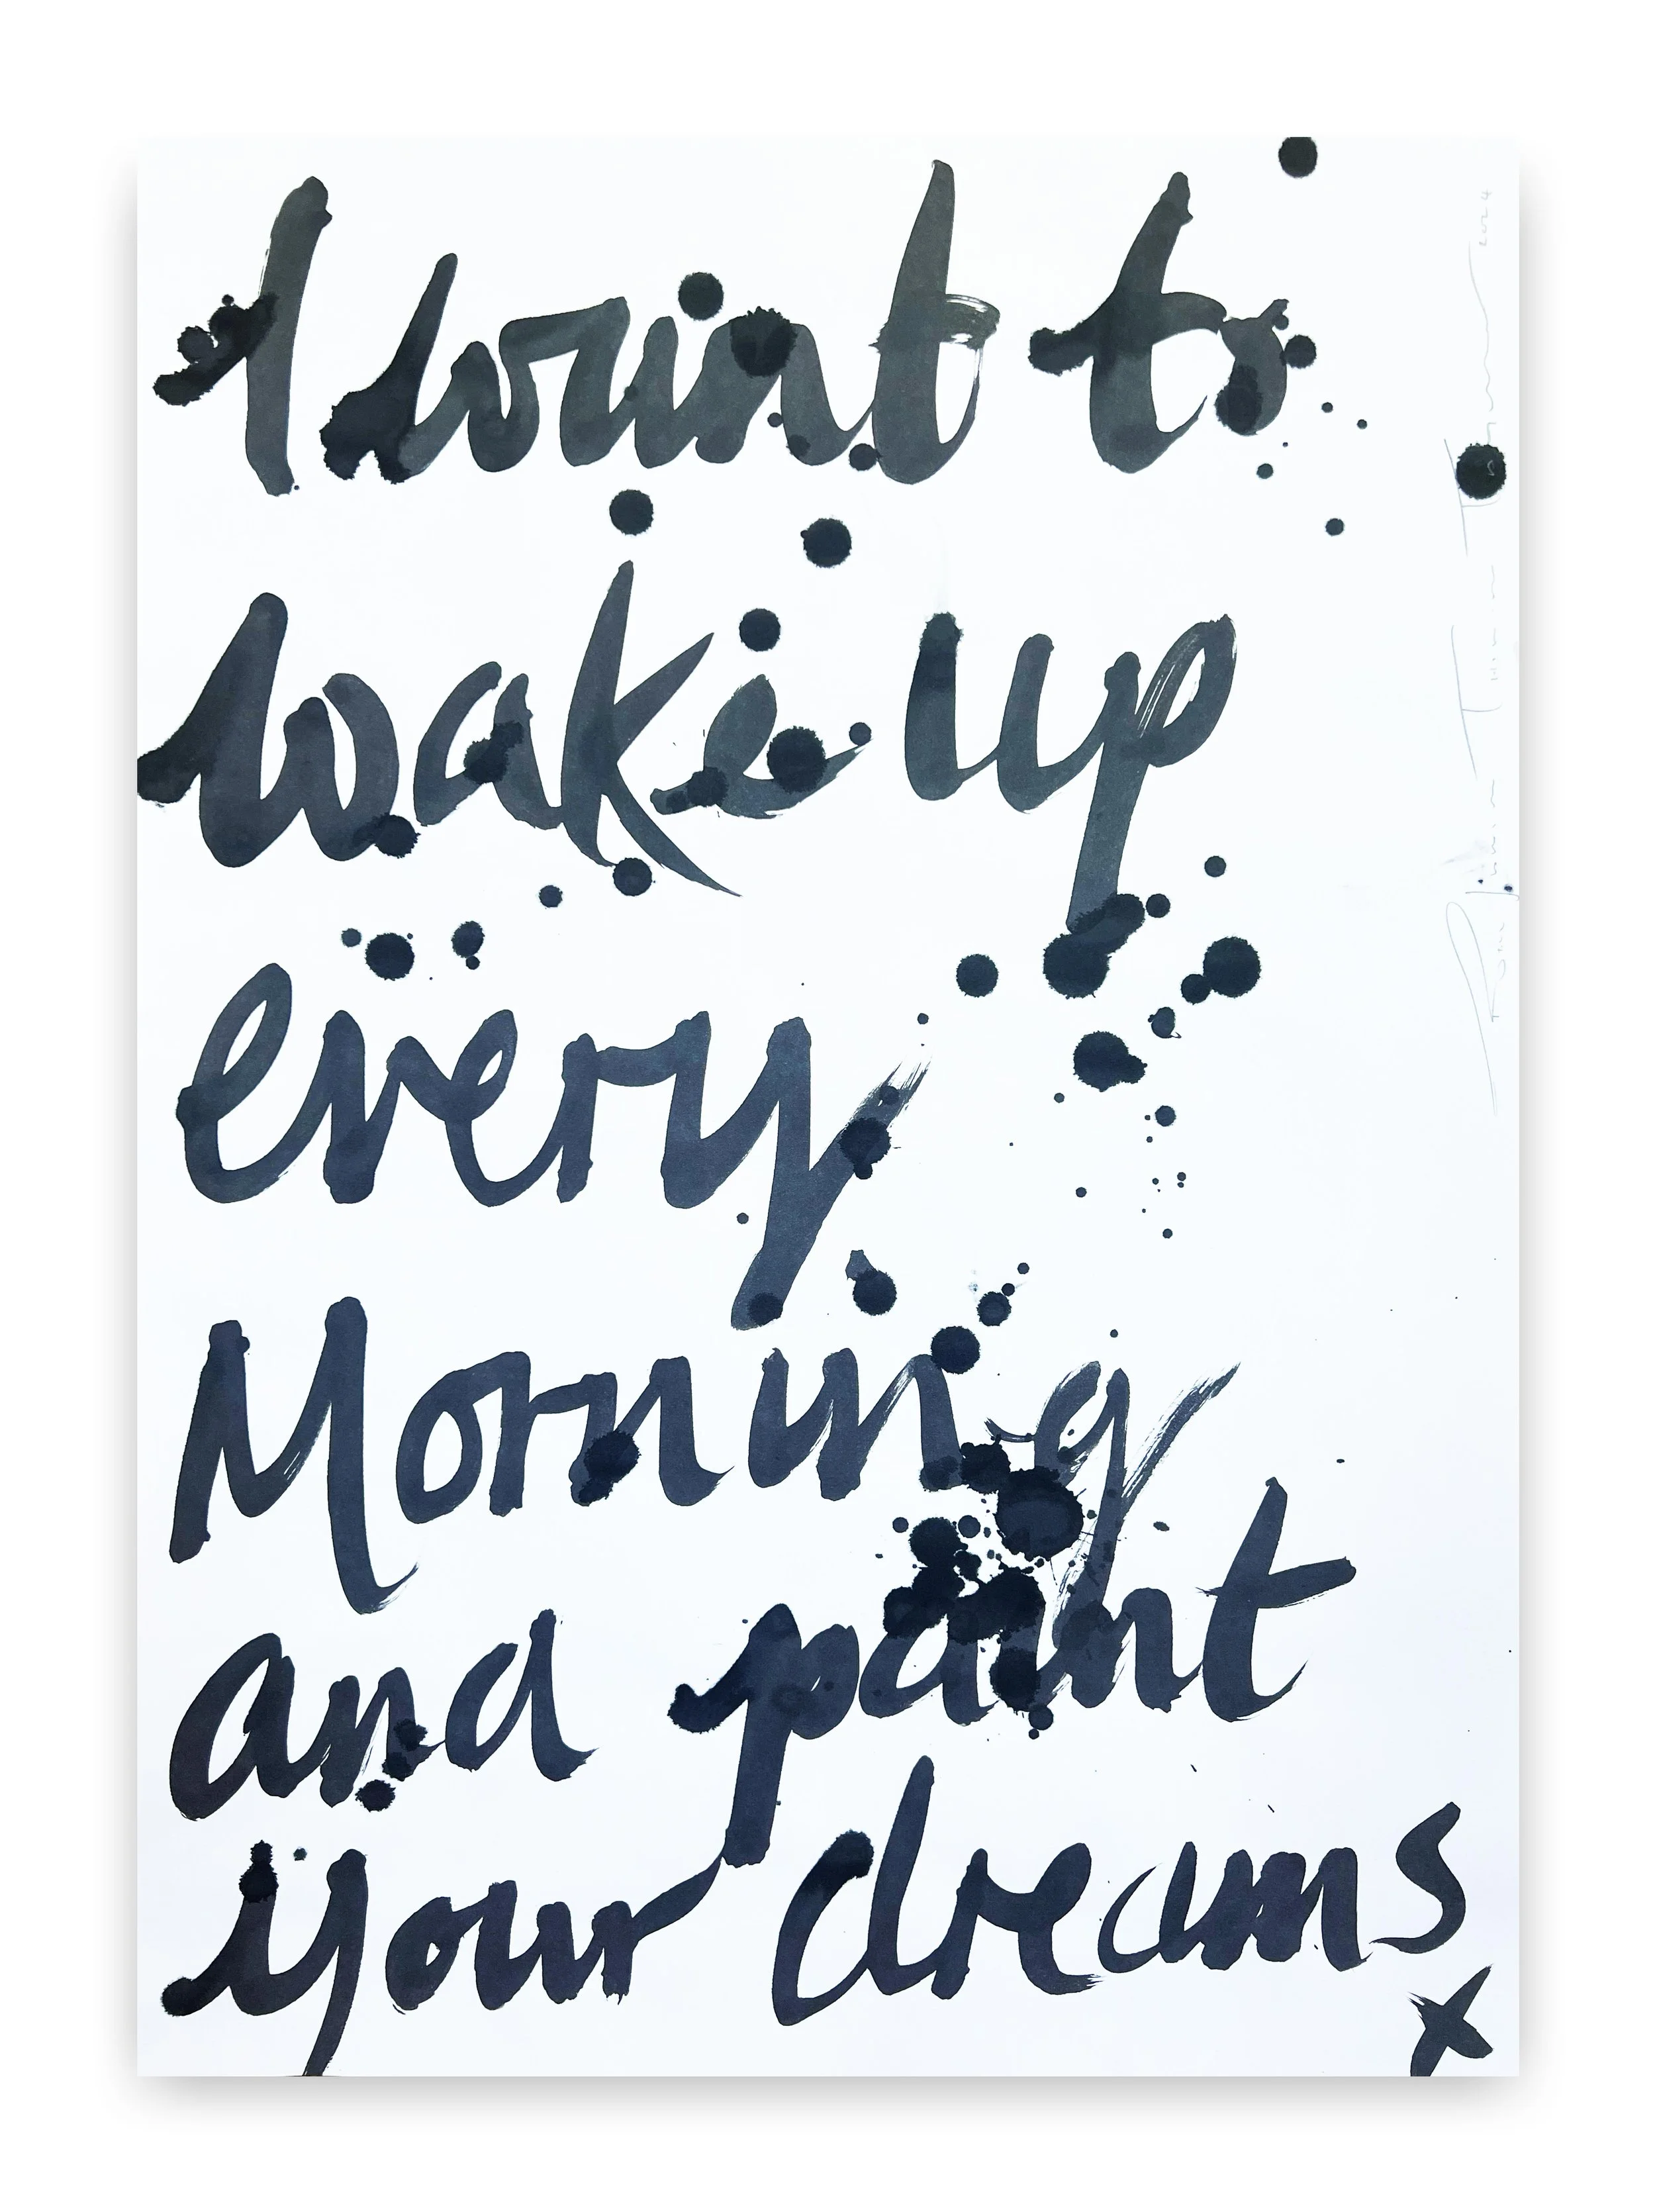 I want to
wake up
every
Morning
and paint
your dreams
x
2024